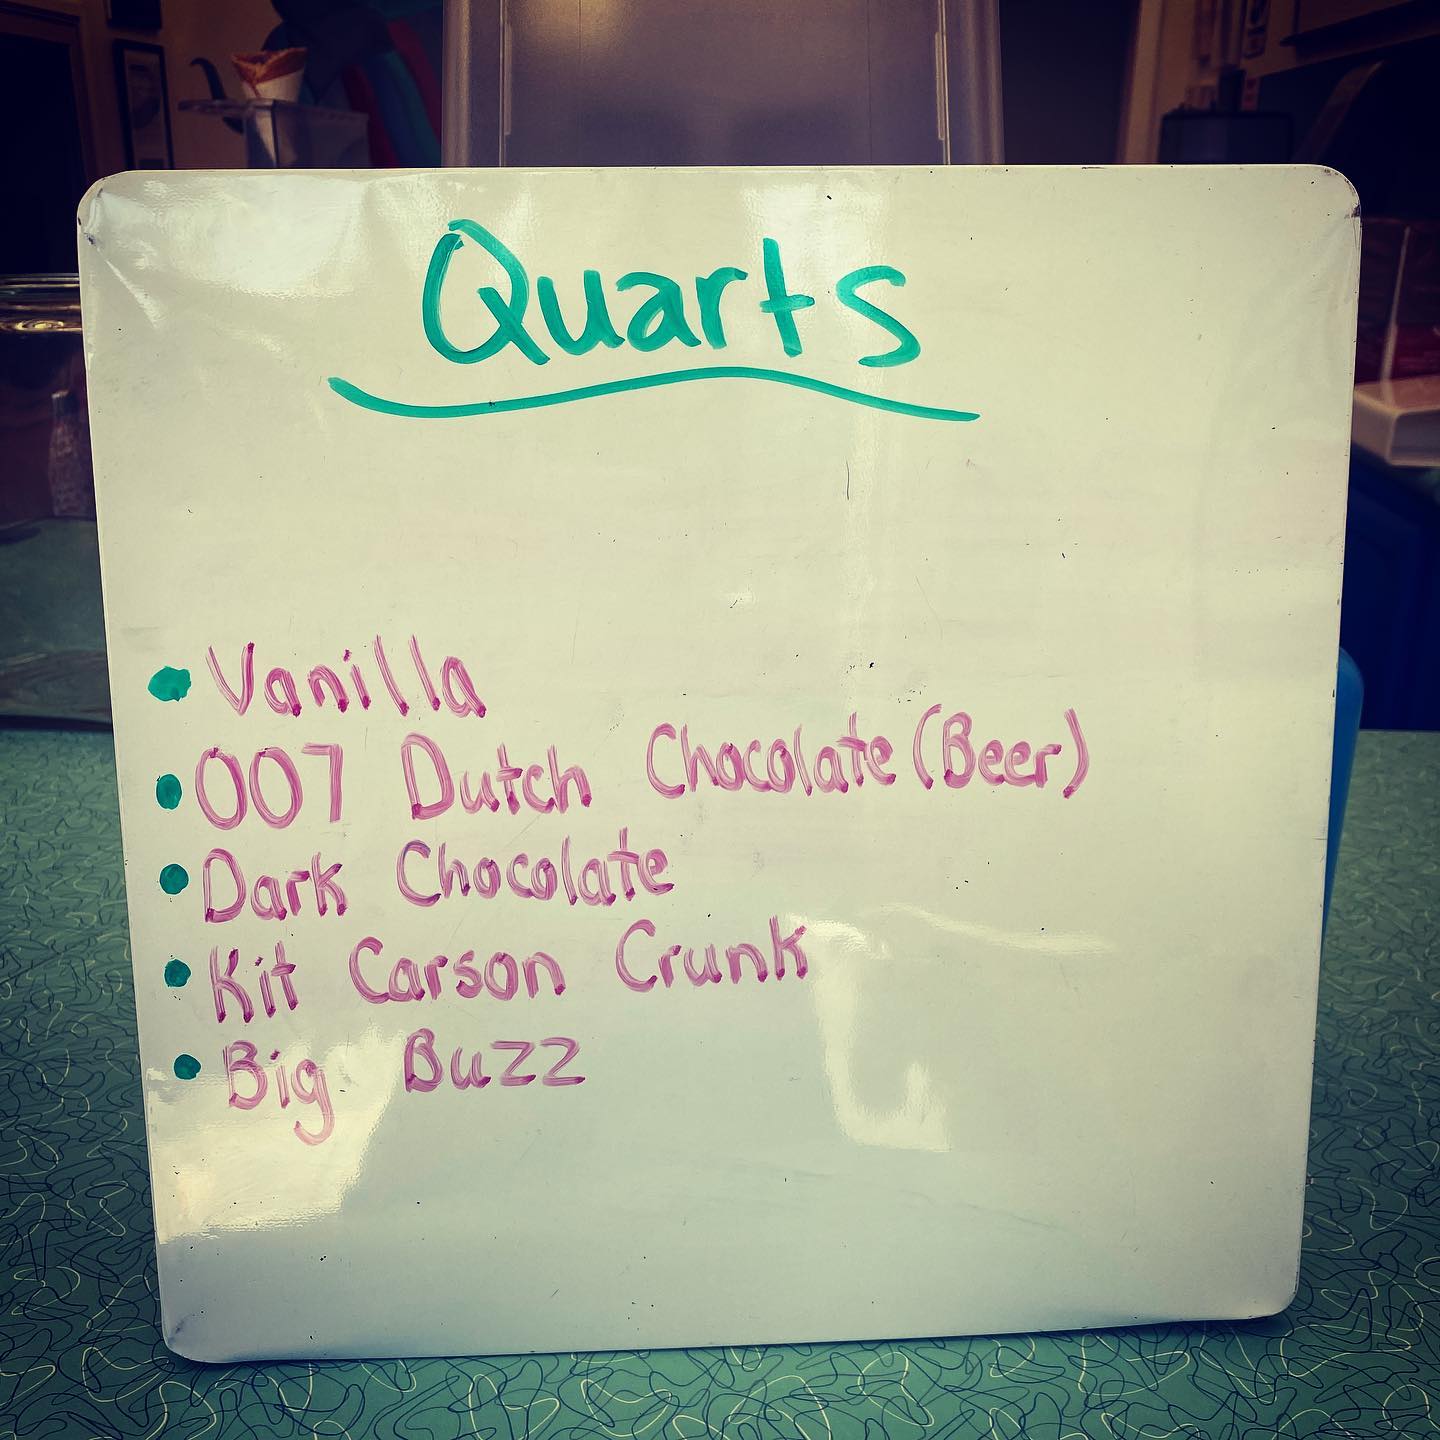 Quarts
• Vanilla
• 007 Dutch Chocolate (Beer)
• Dark Chocolate
• Kit Carson Crunk
• Big Buzz